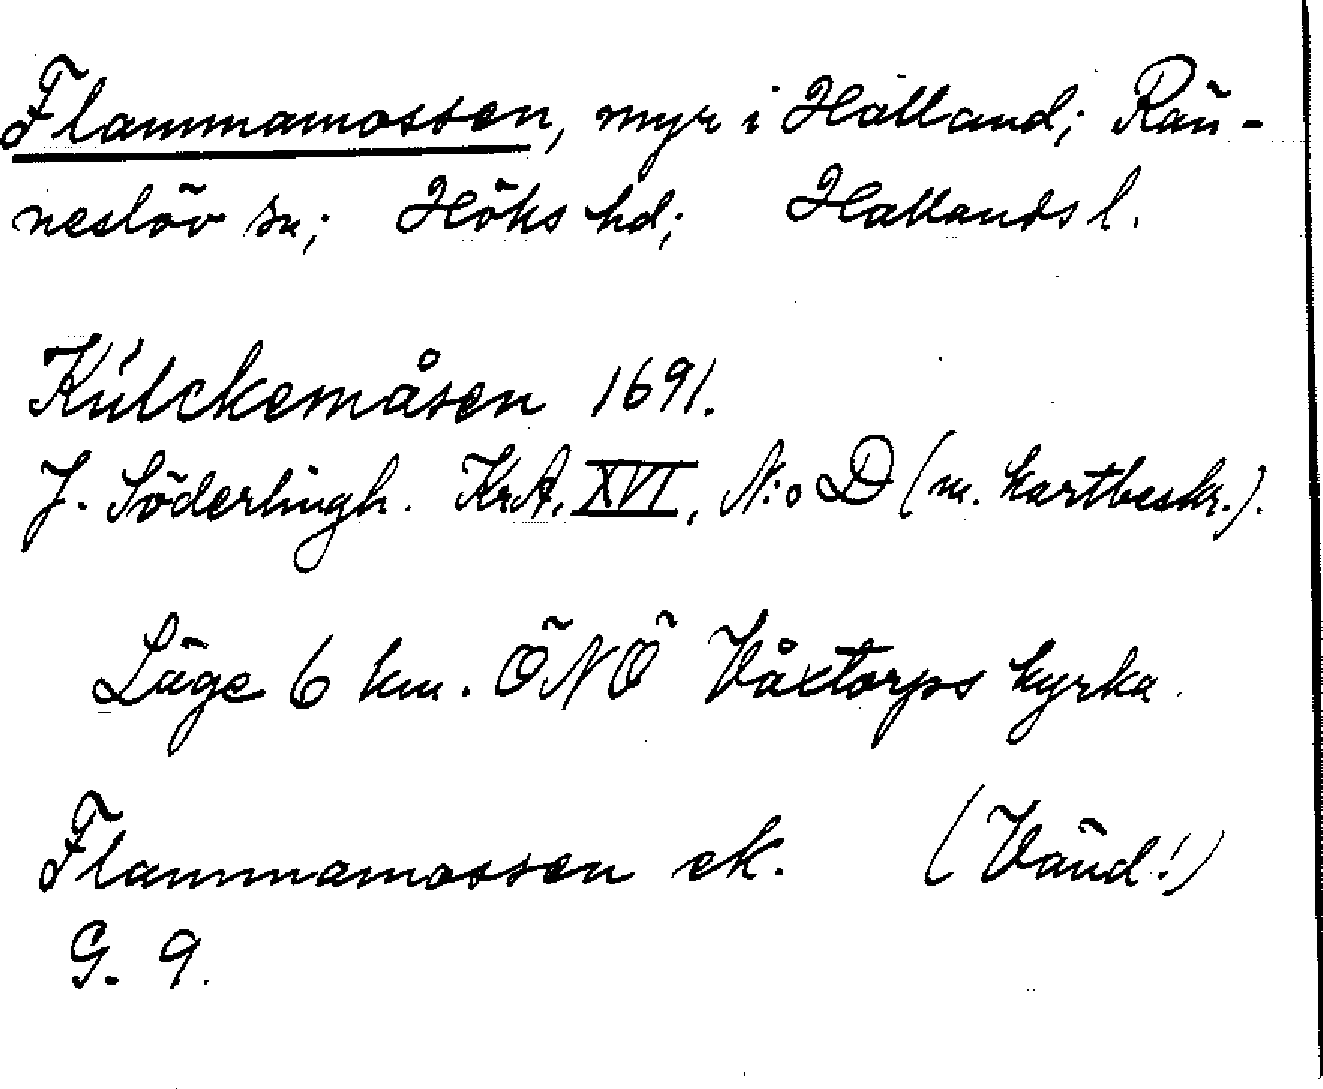 Flammamossen, myr i Halland; Rän-
neslöv sn; Höks hd; Hallands l.
Kúlckemåsen 1691.
J. Söderlingh. KrA, XVI, N:o D (m. kartbeskr.).
Läge 6 km. ÖNÖ Våxtorps kyrka.
Flammamossen ek. (Vänd!)
G. 9.